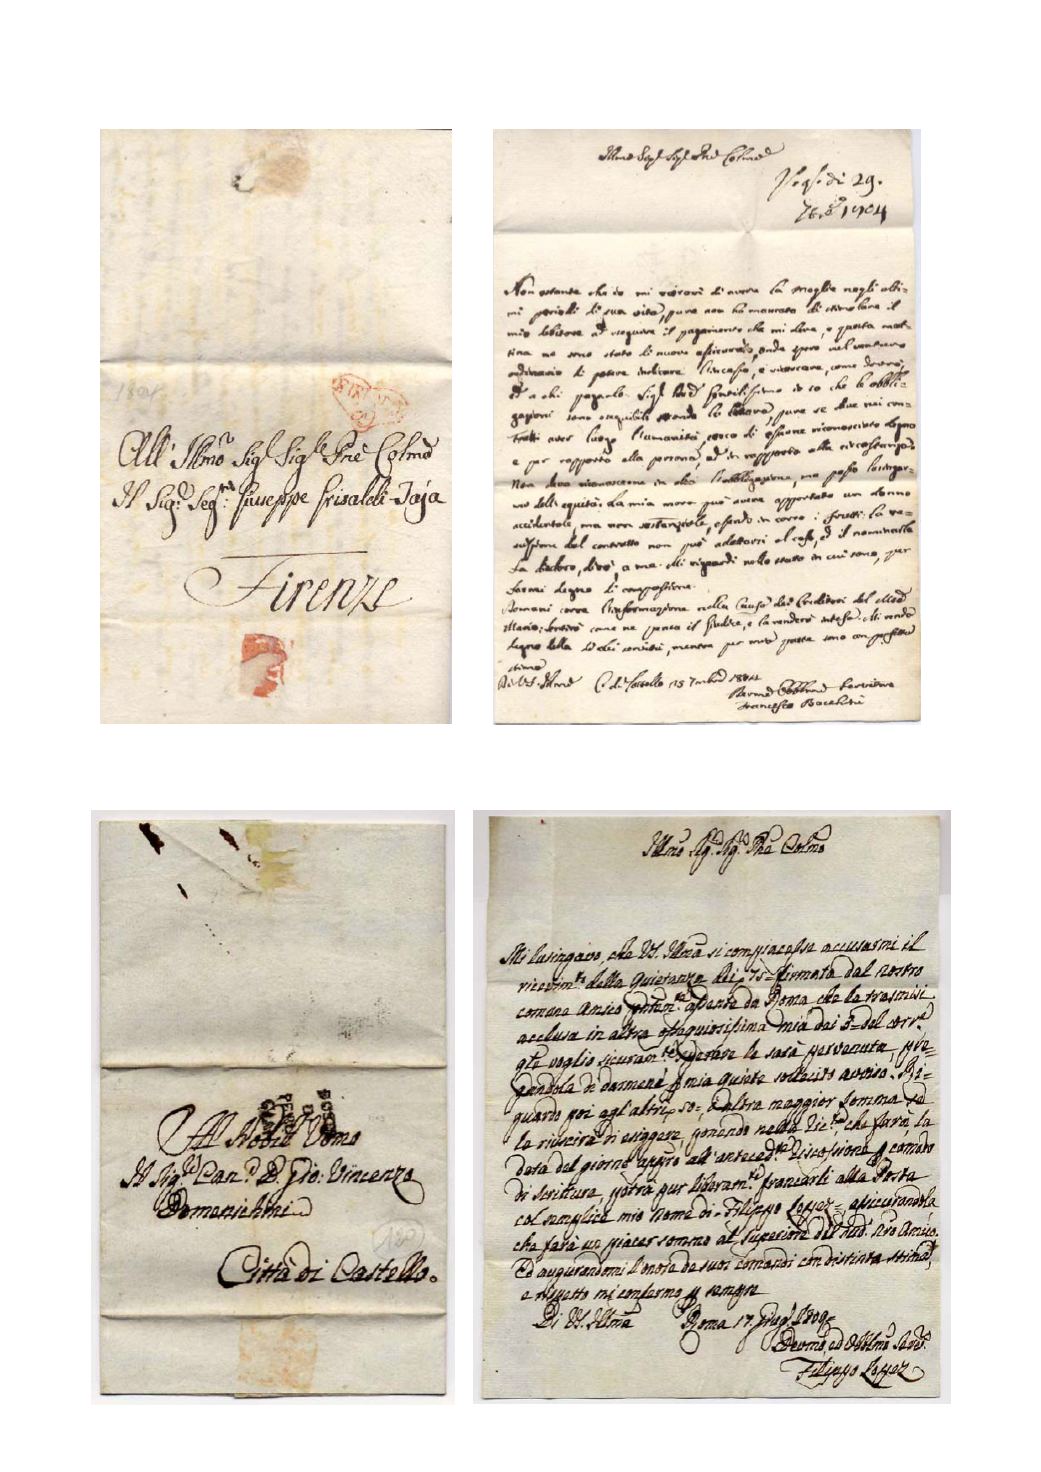 1804
All' Illmo Sigr Sigr Pne Colmo
Il Sigr Segrio Giuseppe Grisaldi Taja
Firenze
Illmo Sigr Sigr Pne Colmo
di 29.
1804
Non ostante che io mi ritrovi di avere la Moglie negli ulti=
mi periodi di sua vita, pure non ho mancato di stimolare il
mio debitore ad eseguire il pagamento che mi deve, e questa mat=
tina ne sono stato di nuovo assicurato, onde spero nel venturo
ordinario di potere indicare l'incasso, e
ed a chi pagarlo. Sigr Pne Gentilissimo io so che le obbli=
gazioni sono eseguibili secondo la lettera, pure se due nei con=
tratti aver luogo l'umanità, credo di essere riconosciuto degno
e per rapporto alla persona, ed in rapporto alla circostanza.
Non devo riconoscere in lei l'obbligazione, ma posso lusingar=
mi dell'equità. La mia mora può avere apportato un danno
accidentale, ma non sostanziale, essendo in corso i frutti. La re=
del contratto non può adattarsi al caso, ed il nominarla
fa disdoro, dirò a me. Mi riguardi nello stato in cui sono, per
farmi degno di compassione.
Domani corre l'informazione nella Causa dei Creditori del
Mario: sentirò come ne pensa il Giudice, e la renderò intesa. Mi renda
degno delli di Lei comandi, mentre per mia parte sono con perfetta
stima
Di VS. Illma C. di Castello 25 1804
Devmo Obblmo Servitore
Francesco
All Nobil Uomo
Il Sigr Canco D. Gio: Vincenzo
Domenichini
Città di Castello.
180
Illmo Sigr Sigr Pne Colmo
Mi lusingavo, che VS. Illma si compiacesse accusarmi il
ricevimto della Quietanza dei 75= firmata dal nostro
comune Amico assente da Roma che la trasmisi
acclusa in altra ossequiosissima mia dei 3= del corre
che voglio sicuramte sperare le sarà pervenuta, pre=
gandola di darmene p mia quiete sollecito avviso. Ri=
guardo poi agl'altri 50= o altra maggior somma se
le riuscirà di esiggere, ponendo nella Ricta, che farà, la
data del giorno appro all'antecedte riscossione p comodo
di scrittura, potrà pur liberamte francarli alla Posta
col semplice mio nome di= Filippo Lopez= assicurandola,
che farà un piacer sommo al superiore del sudo nro Amico.
Ed augurandomi l'onore de suoi comandi con distinta stima,
e rispetto mi confermo p sempre
Di VS. Illma Roma 17. Giugo 1809.
Devmo, ed Obblmo Servre
Filippo Lopez